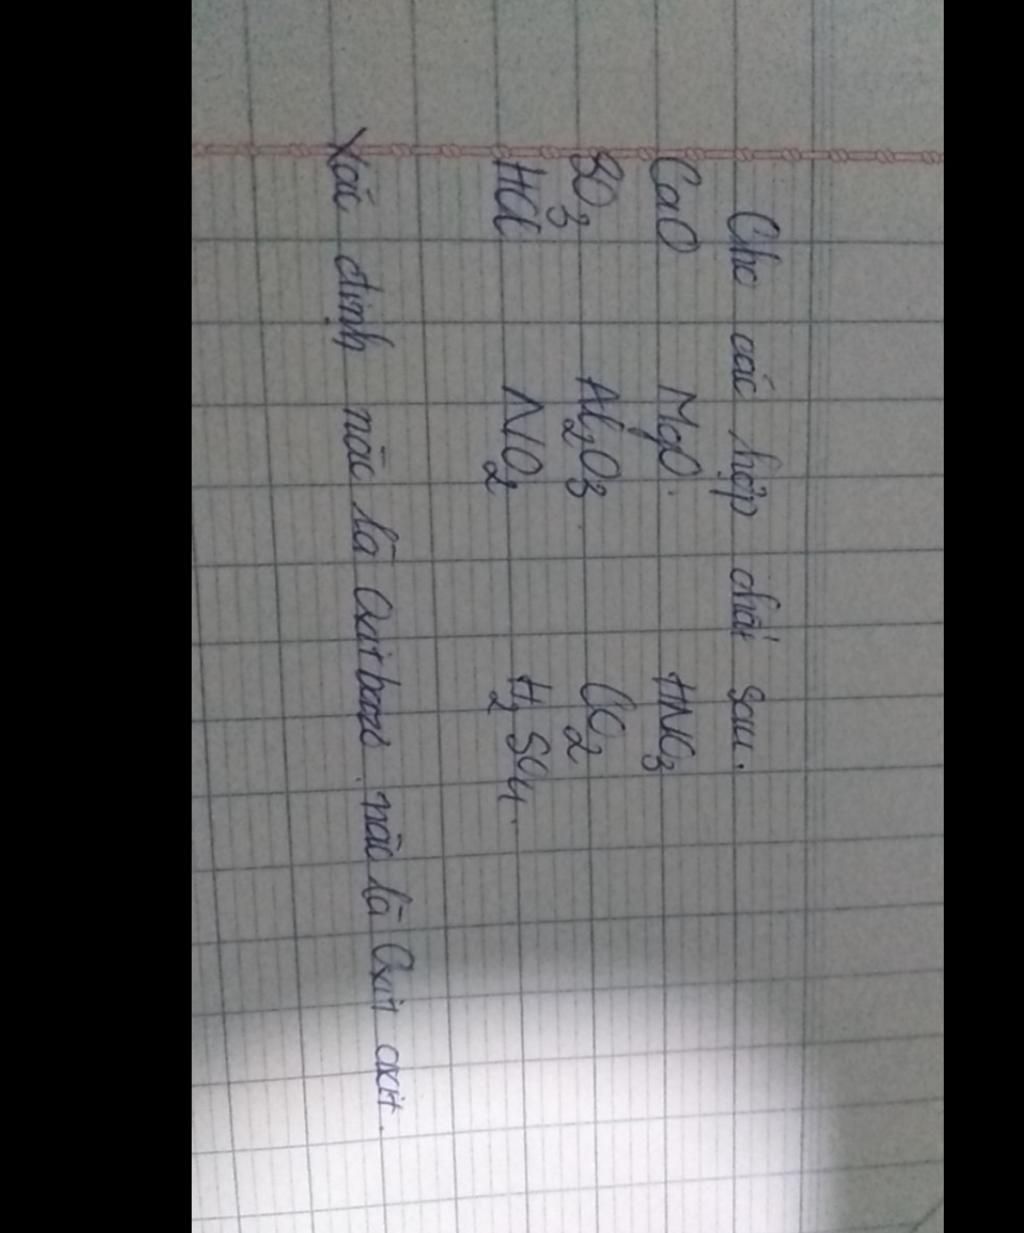 Cho các hợp chất sau.
CaO MgO. HNO3
SO3 Al2O3 CO2
HCl NO2 H2SO4.
Xác định nào là Oxit bazơ nào là Oxit axit.